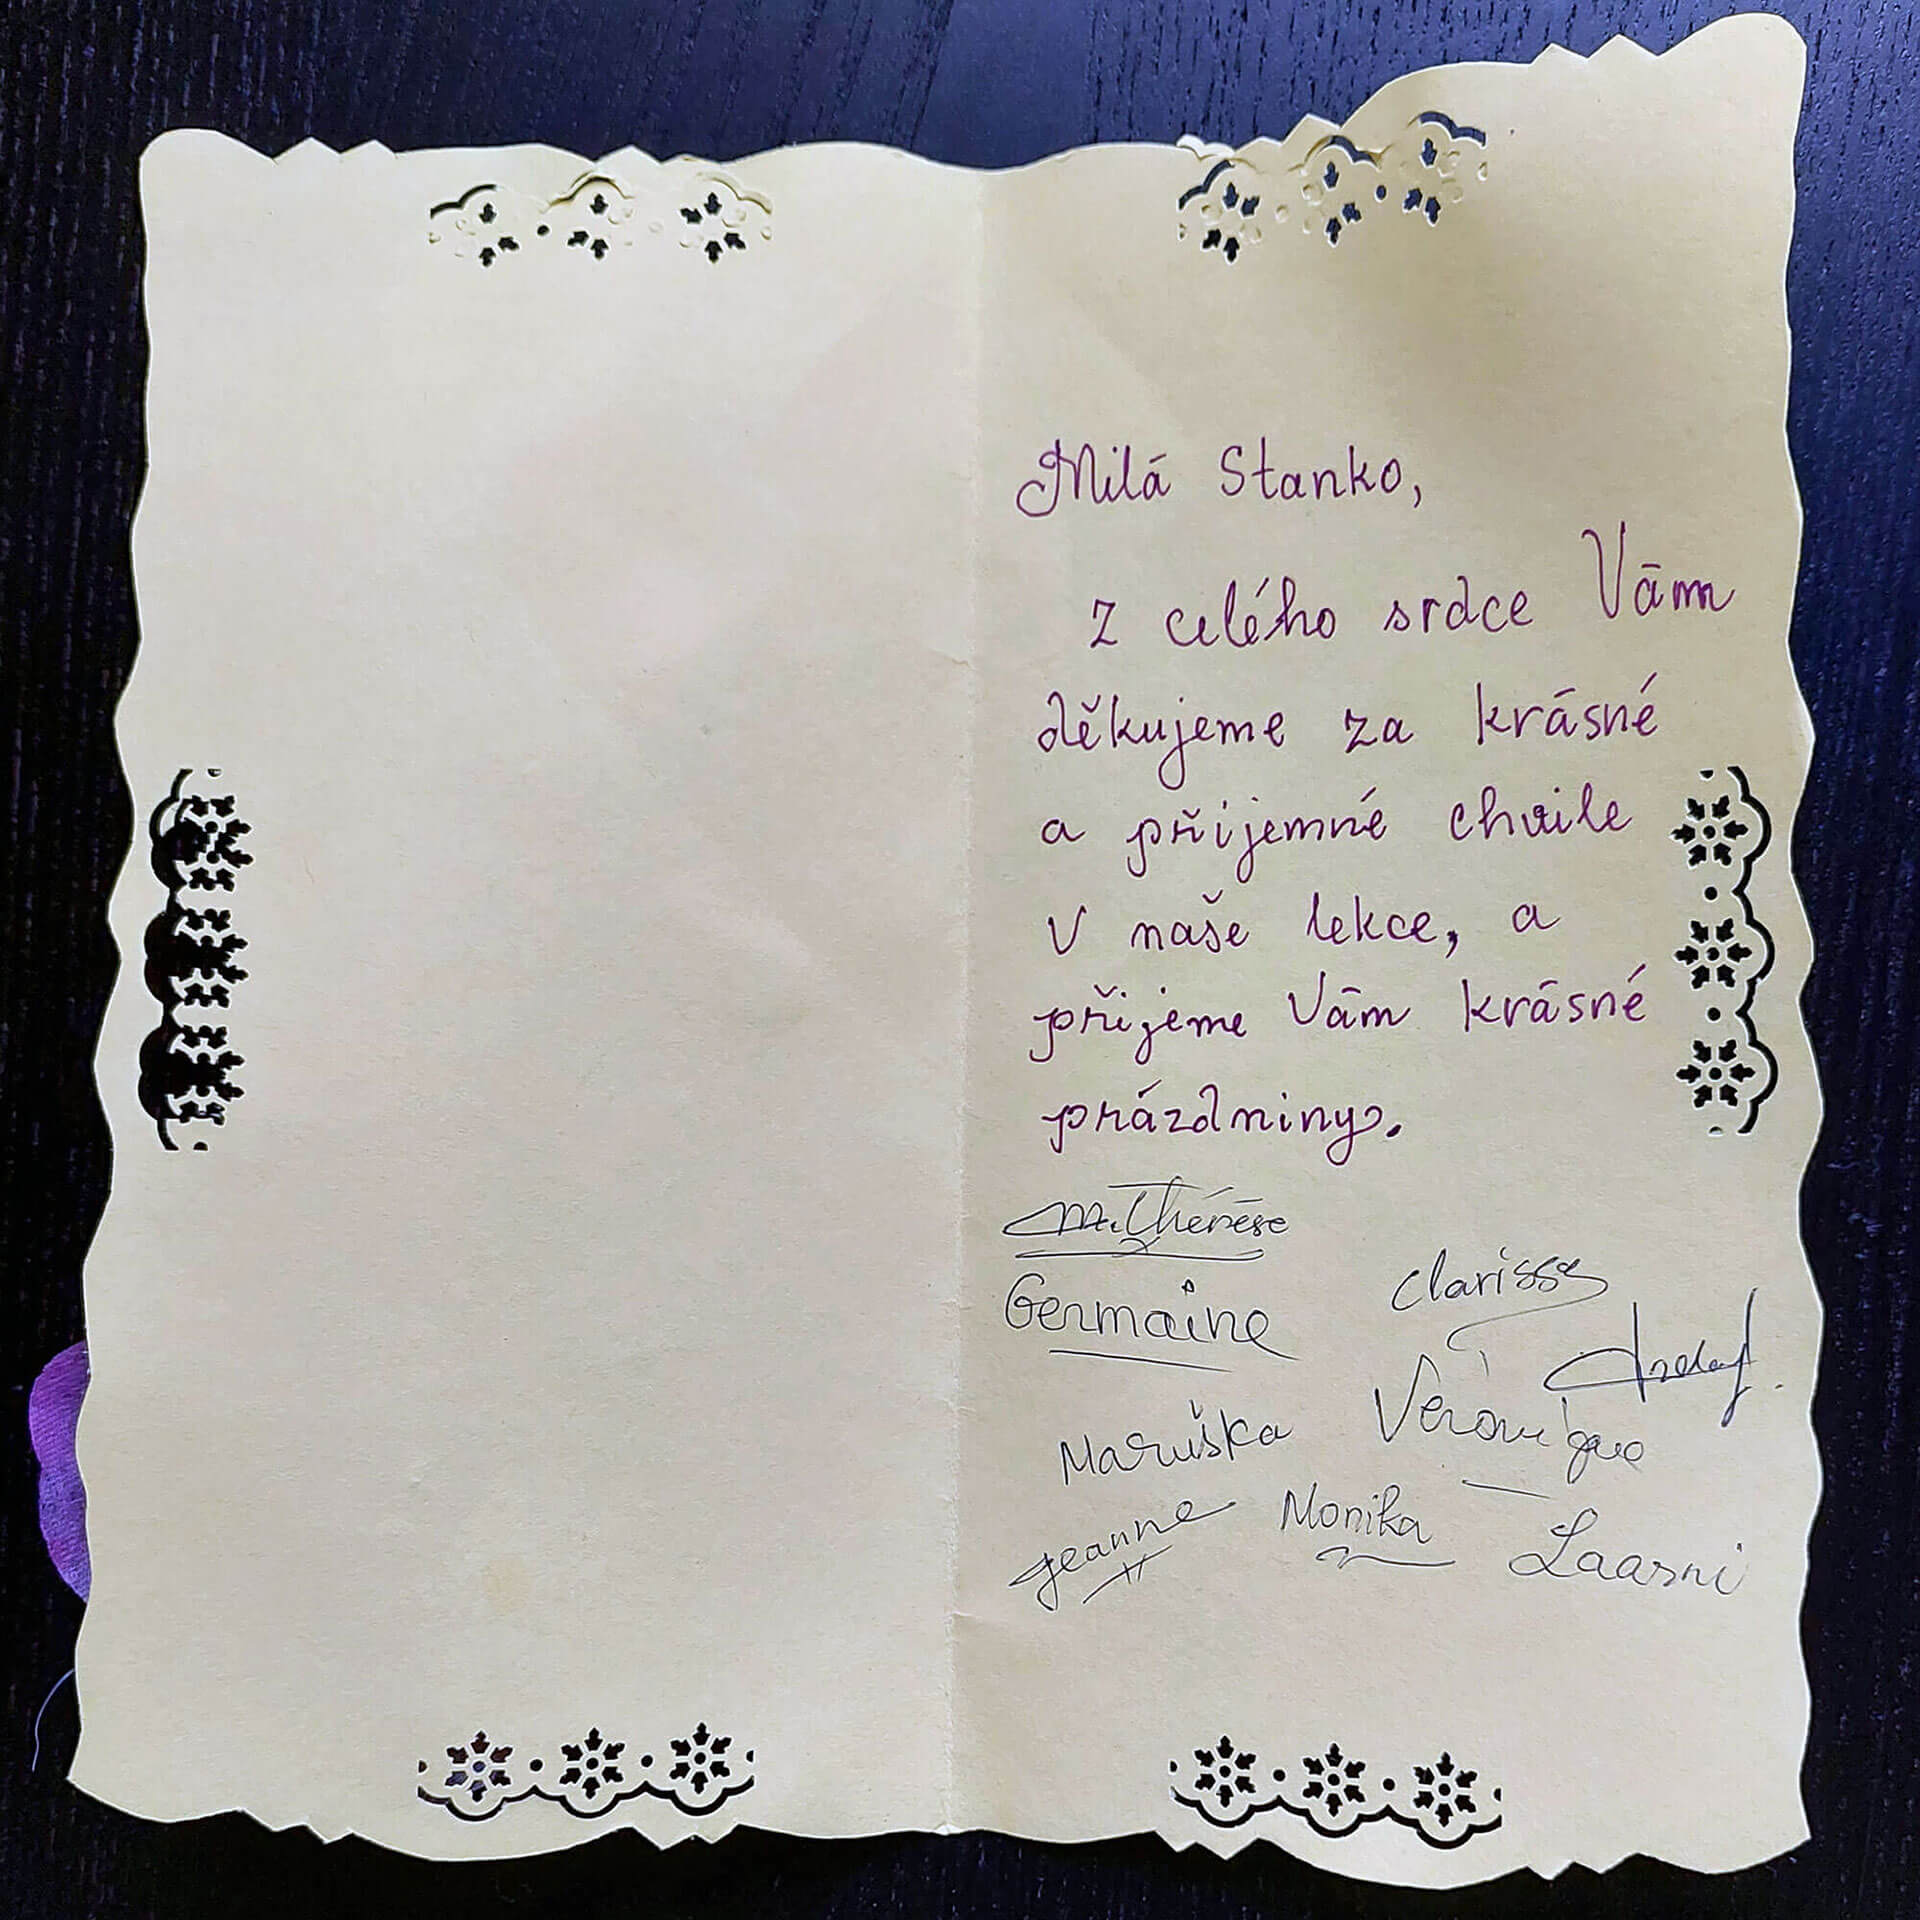 Milá Stanko,
z celého srdce Vám
děkujeme za krásné
a přijemné chvile
v naše lekce, a
přijeme Vám krásné
prázdniny.
M. Thérèse
Clarisse
Germaine
Maruška
Véronique
Jeanne
Monika
Laarni